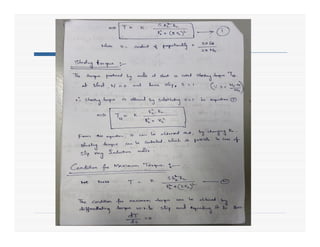 ⟹ T = K · S E₂² R₂ / R₂² + (S X₂)² → ①
where K = constant of proportionality =
Starting Torque :-
The torque produced by motor at start is called starting torque Tst
at start N = 0 and hence slip, S = 1
∴ Starting torque is obtained by substituting S = 1 in equation ①
⟹ Tst = K · E₂² R₂ / R₂² + X₂²
From this equation, it can be observed that, by changing R₂
starting torque can be controlled which is possible in case of
slip ring Induction motor.
Condition for Maximum Torque :-
We have T = K · S E₂² R₂ / R₂² + (S X₂)²
The condition for maximum torque can be obtained by
differentiating torque w.r.to slip and equating it to zero
dT/ds = 0